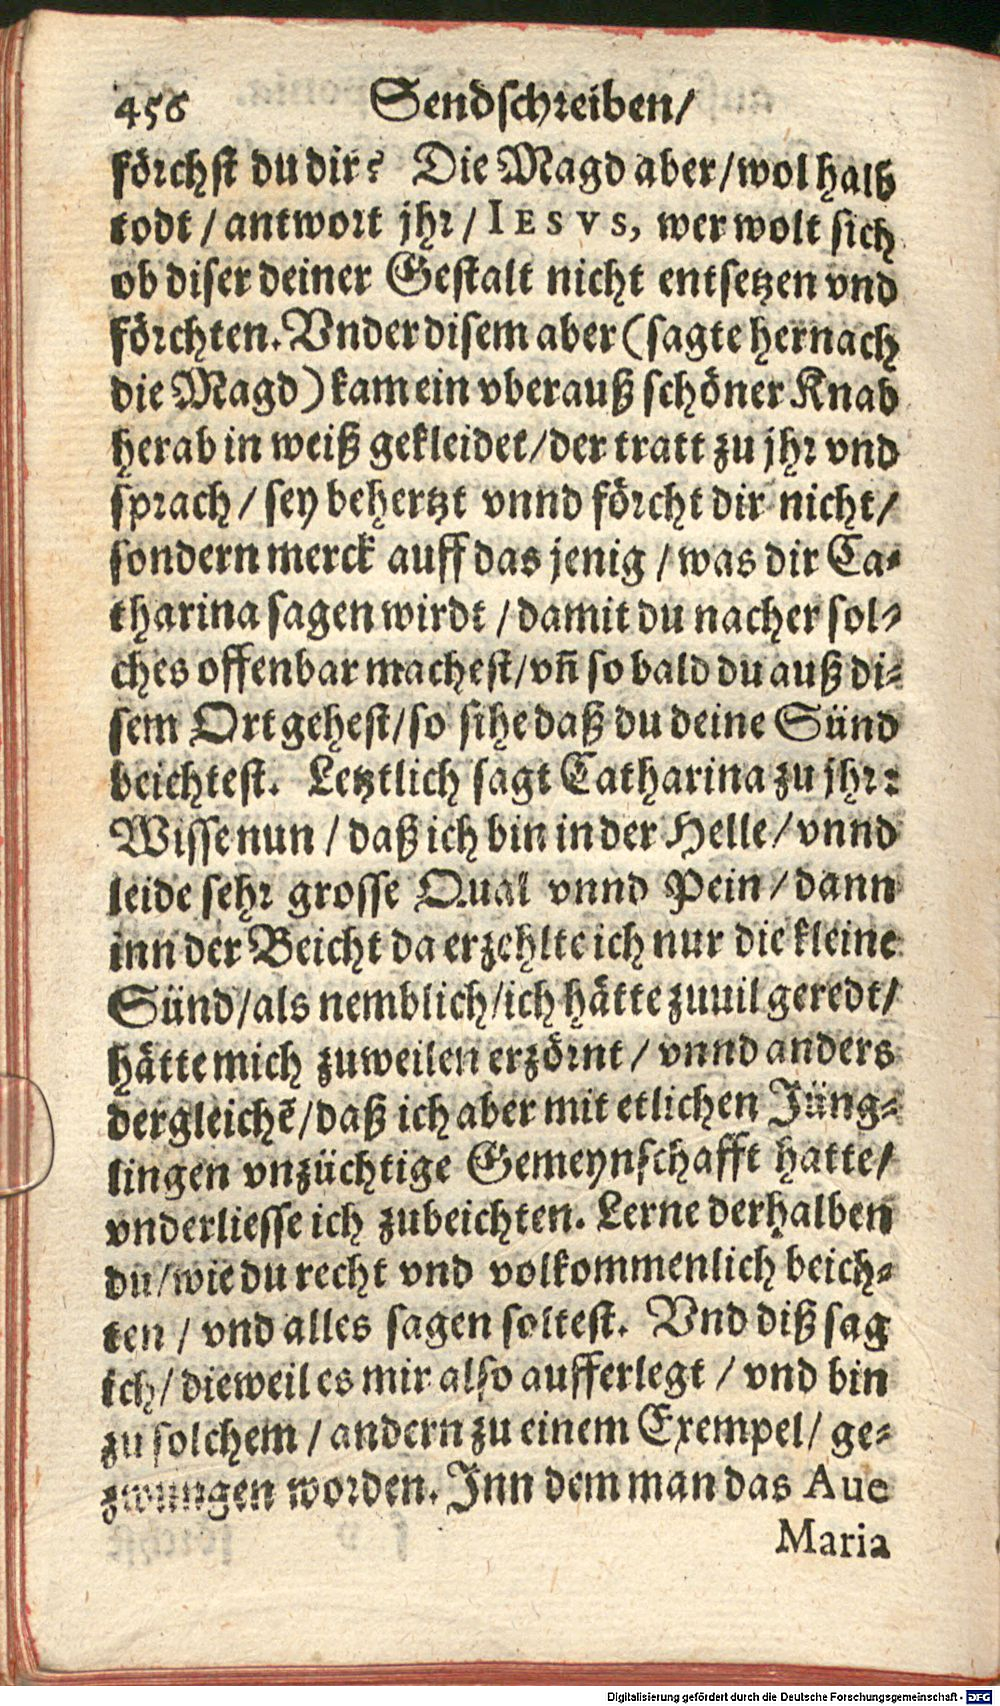 456 Sendschreiben/
förchst du dir? Die Magd aber/wol halb
todt / antwort jhr / IESVS, wer wolt sich
ob diser deiner Gestalt nicht entsetzen vnd
förchten. Vnder disem aber (sagte hernach
die Magd) kam ein vberauß schöner Knab
herab in weiß gekleidet/der tratt zu jhr vnd
sprach / sey behertzt vnnd förcht dir nicht/
sondern merck auff das jenig / was dir Ca-
tharina sagen wirdt / damit du nacher sol-
ches offenbar machest/vñ so bald du auß di-
sem Ort gehest/so sihe daß du deine Sünd
beichtest. Letztlich sagt Catharina zu jhr:
Wisse nun / daß ich bin in der Helle/ vnnd
leide sehr grosse Qual vnnd Pein / dann
inn der Beicht da erzehlte ich nur die kleine
Sünd/als nemblich/ich hätte zuuil geredt/
hätte mich zuweilen erzörnt / vnnd anders
dergleichē/daß ich aber mit etlichen Jüng-
lingen vnzüchtige Gemeynschafft hatte/
vnderliesse ich zubeichten. Lerne derhalben
du/wie du recht vnd volkommenlich beich-
ten / vnd alles sagen soltest. Vnd diß sag
ich/ dieweil es mir also aufferlegt / vnd bin
zu solchem / andern zu einem Exempel/ ge-
zwungen worden. Inn dem man das Aue
Maria
Digitalisierung gefördert durch die Deutsche Forschungsgemeinschaft - DFG